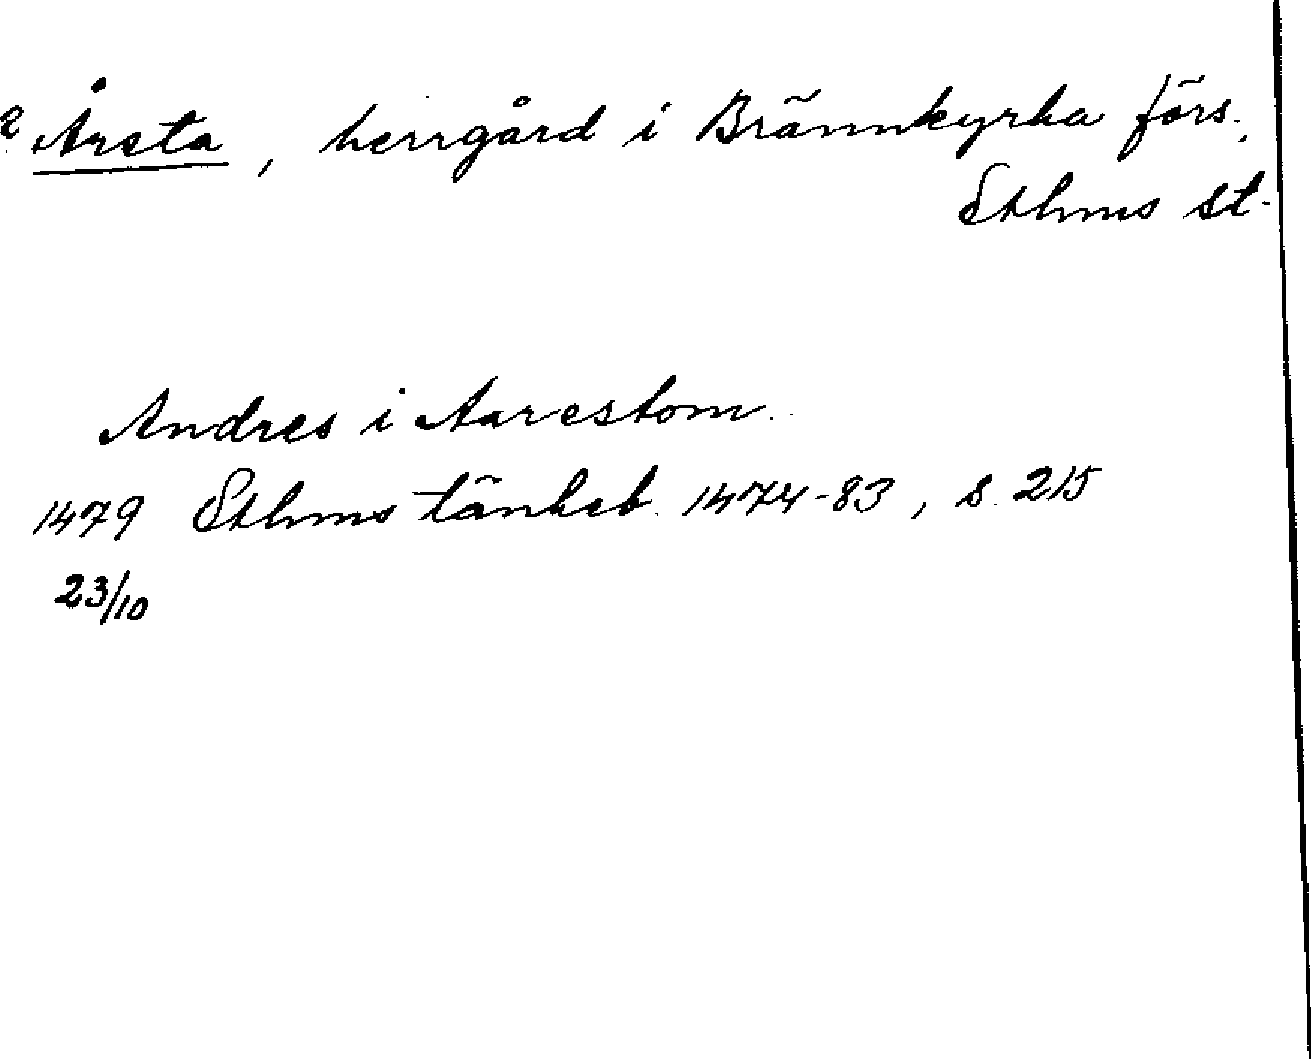 ? Årsta, herrgård i Brännkyrka förs.,
Sthlms st.
Andres i Aarestom.
1479 Sthlms tänkeb. 1474-83, s. 215
23/10